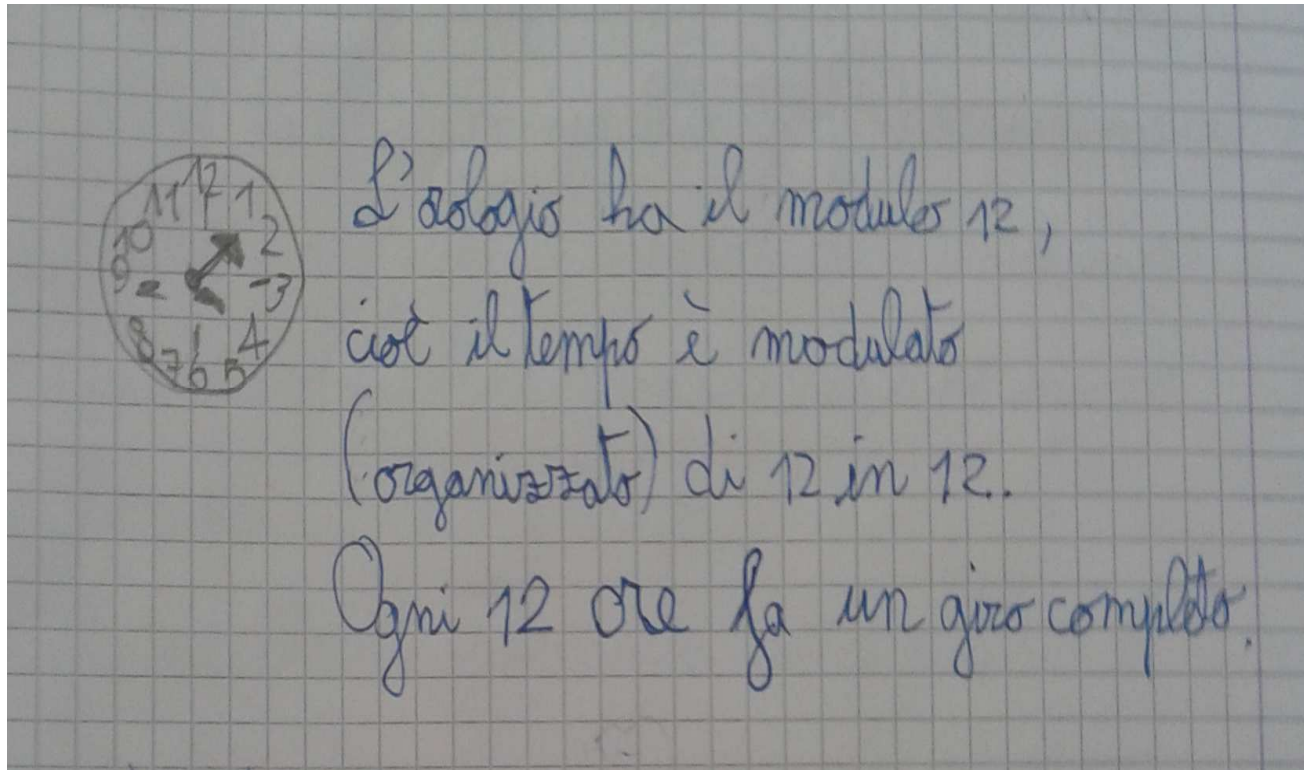 12
11 1
10 2
9 3
8 4
7 6 5
L'orologio ha il modulo 12,
cioè il tempo è modulato
(organizzato) di 12 in 12.
Ogni 12 ore fa un giro completo.